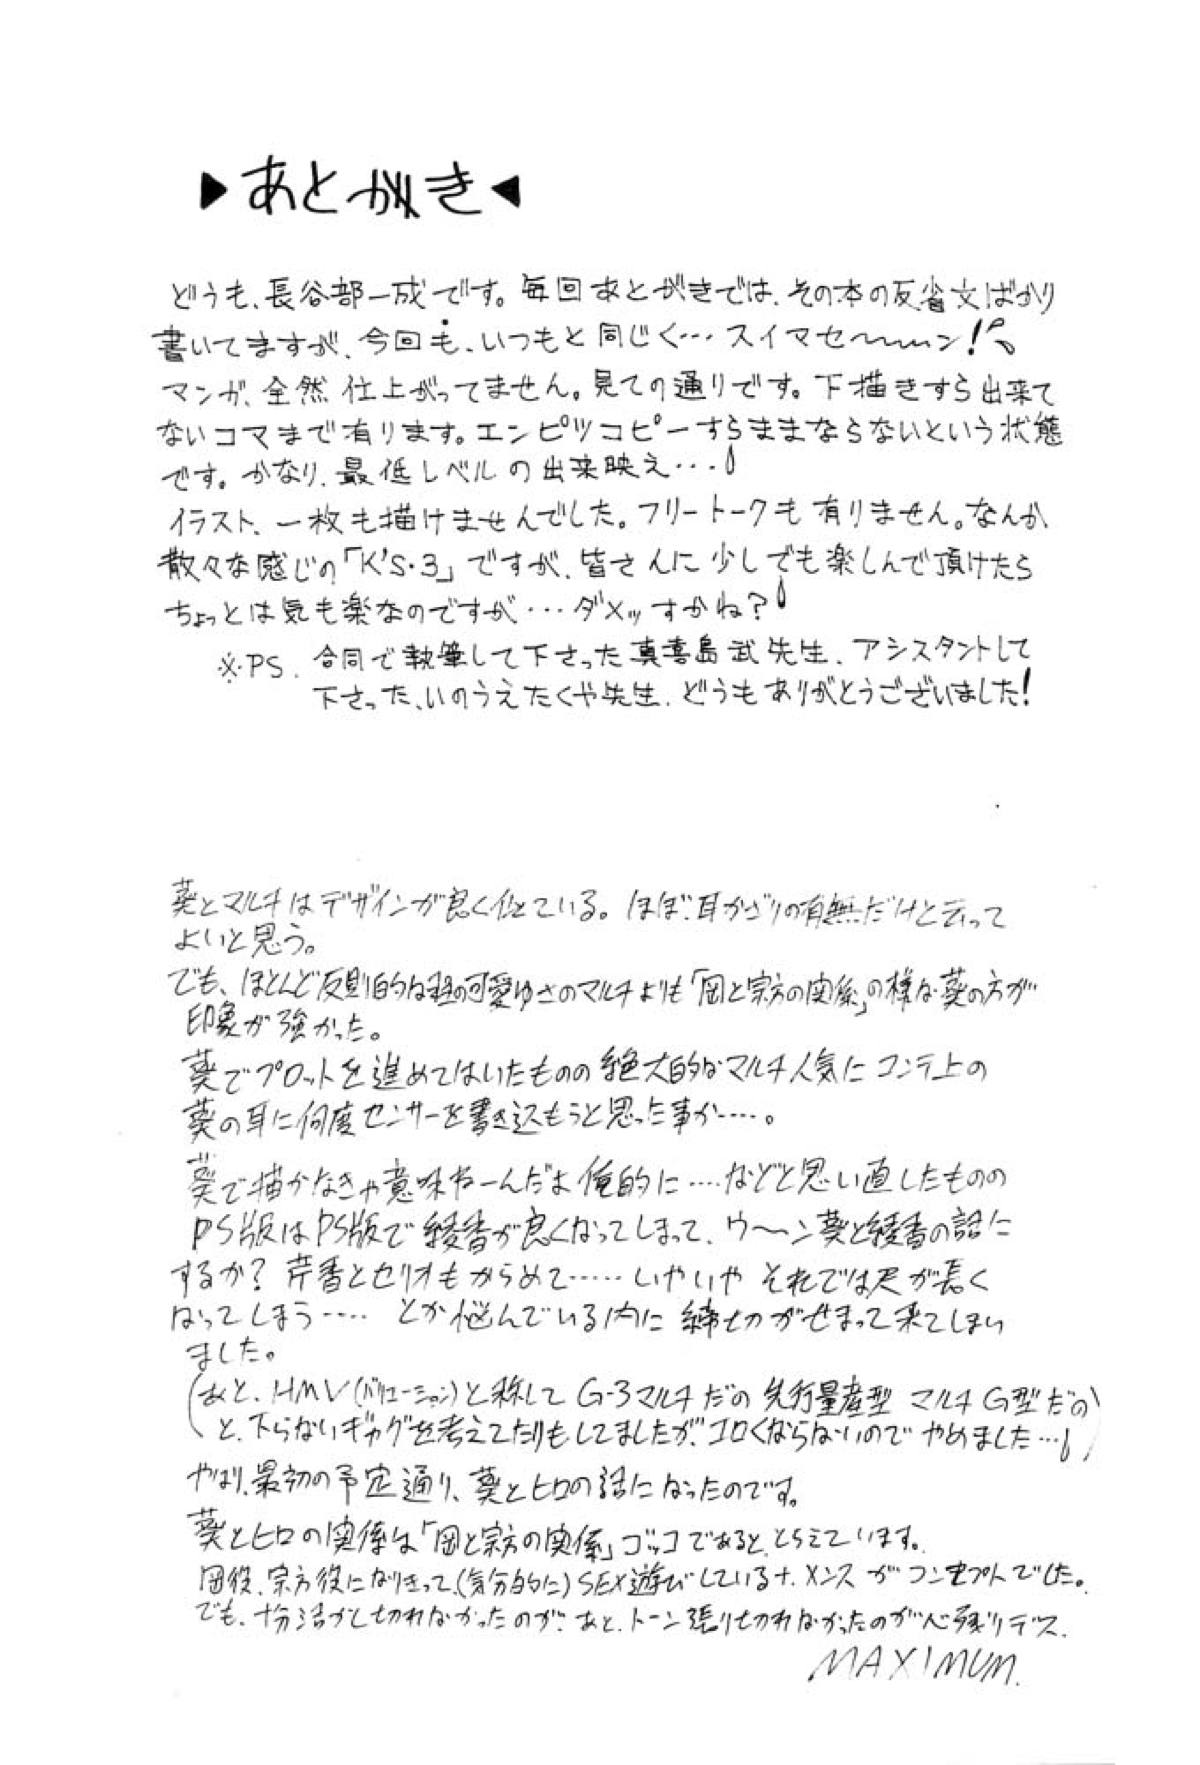 ▶あとがき◀
どうも、長谷部一成です。毎回あとがきでは、その本の反省文ばかり
書いてますが、今回も、いつもと同じく…スイマセ〜〜ン!
マンガ、全然仕上がってません。見ての通りです。下描きすら出来て
ないコマまで有ります。エンピツコピーすらままならないという状態
です。かなり、最低レベルの出来映え…
イラスト、一枚も描けませんでした。フリートークも有りません。なんか
散々な感じの「K'S・3」ですが、皆さんに少しでも楽しんで頂けたら
ちょっとは気も楽なのですが…ダメッすかね?
※PS. 合同で執筆して下さった真喜島武先生、アシスタントして
下さった、いのうえたくや先生、どうもありがとうございました!
葵とマルチはデザインが良く似ている。ほぼ、耳かざりの有無だけと云って
よいと思う。
でも、ほとんど反則的な可愛ゆさのマルチよりも「岡と宗方の関係」の様な葵の方が
印象が強かった。
葵でプロットを進めてはいたものの絶大的なマルチ人気にコンテ上の
葵の耳に何度センサーを書き込もうと思った事か……。
葵で描かなきゃ意味ねーんだよ俺的に……などと思い直したものの
PS版はPS版で綾香が良くなってしまって、ウ〜ン葵と綾香の話に
するか? 芹香とセリオもからめて……いやいやそれでは尺が長く
なってしまう……とか悩んでいる内に締切がせまって来てしまい
ました。
(あと、HMV(バリエーション)と称してG-3マルチだの先行量産型マルチG型だの
と、下らないギャグを考えてたりもしてましたが、エロくならないのでやめました…)
やはり、最初の予定通り、葵とヒロの話になったのです。
葵とヒロの関係は「岡と宗方の関係」ゴッコであると、とらえています。
岡役、宗方役になりきって、(気分的に)SEX遊びしているナ、メンスがコンセプトでした。
でも、十分活かし切れなかったのが、あと、トーン張り切れなかったのが心残りデス.
MAXIMUM.